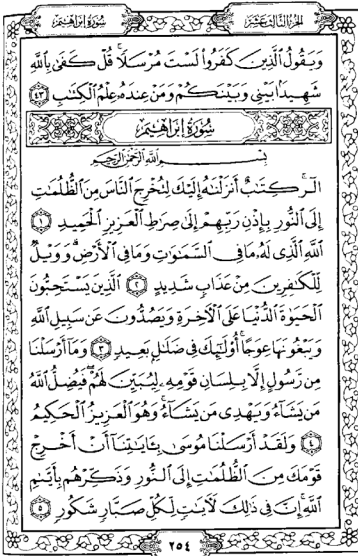 الجزء الثالث عشر
سورة إبراهيم
وَيَقُولُ الَّذِينَ كَفَرُوا لَسْتَ مُرْسَلًا ۚ قُلْ كَفَىٰ بِاللَّهِ
شَهِيدًا بَيْنِي وَبَيْنَكُمْ وَمَنْ عِندَهُ عِلْمُ الْكِتَابِ ٤٣
سورة إبراهيم
بِسْمِ اللَّهِ الرَّحْمَٰنِ الرَّحِيمِ
الٓر ۚ كِتَابٌ أَنزَلْنَاهُ إِلَيْكَ لِتُخْرِجَ النَّاسَ مِنَ الظُّلُمَاتِ
إِلَى النُّورِ بِإِذْنِ رَبِّهِمْ إِلَىٰ صِرَاطِ الْعَزِيزِ الْحَمِيدِ ١
اللَّهِ الَّذِي لَهُ مَا فِي السَّمَاوَاتِ وَمَا فِي الْأَرْضِ ۗ وَوَيْلٌ
لِّلْكَافِرِينَ مِنْ عَذَابٍ شَدِيدٍ ٢ الَّذِينَ يَسْتَحِبُّونَ
الْحَيَاةَ الدُّنْيَا عَلَى الْآخِرَةِ وَيَصُدُّونَ عَن سَبِيلِ اللَّهِ
وَيَبْغُونَهَا عِوَجًا ۚ أُولَٰئِكَ فِي ضَلَالٍ بَعِيدٍ ٣ وَمَا أَرْسَلْنَا
مِن رَّسُولٍ إِلَّا بِلِسَانِ قَوْمِهِ لِيُبَيِّنَ لَهُمْ ۖ فَيُضِلُّ اللَّهُ
مَن يَشَاءُ وَيَهْدِي مَن يَشَاءُ ۚ وَهُوَ الْعَزِيزُ الْحَكِيمُ
٤ وَلَقَدْ أَرْسَلْنَا مُوسَىٰ بِآيَاتِنَا أَنْ أَخْرِجْ
قَوْمَكَ مِنَ الظُّلُمَاتِ إِلَى النُّورِ وَذَكِّرْهُم بِأَيَّامِ
اللَّهِ ۚ إِنَّ فِي ذَٰلِكَ لَآيَاتٍ لِّكُلِّ صَبَّارٍ شَكُورٍ ٥
٢٥٤